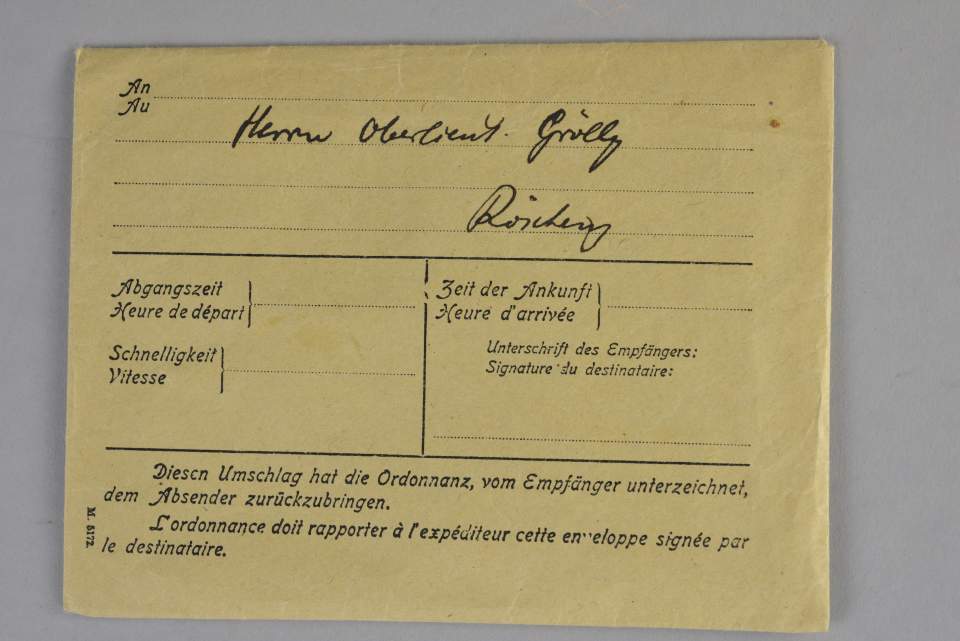 An
Au
Herrn Oberlieut. Grölly
Röschenz
Abgangszeit
Heure de départ
Zeit der Ankunft
Heure d'arrivée
Schnelligkeit
Vitesse
Unterschrift des Empfängers:
Signature du destinataire:
Diesen Umschlag hat die Ordonnanz, vom Empfänger unterzeichnet,
dem Absender zurückzubringen.
L'ordonnance doit rapporter à l'expéditeur cette enveloppe signée par
le destinataire.
M. 5172